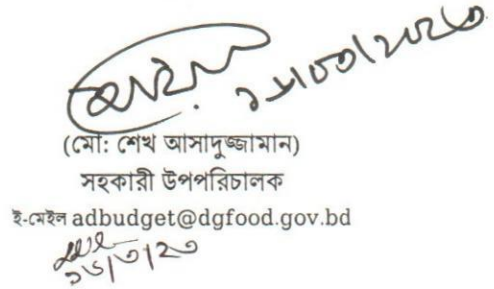 ১৬/০৩/২০২৩
(মো: শেখ আসাদুজ্জামান)
সহকারী উপপরিচালক
ই-মেইল adbudget@dgfood.gov.bd
১৬/৩/২৩